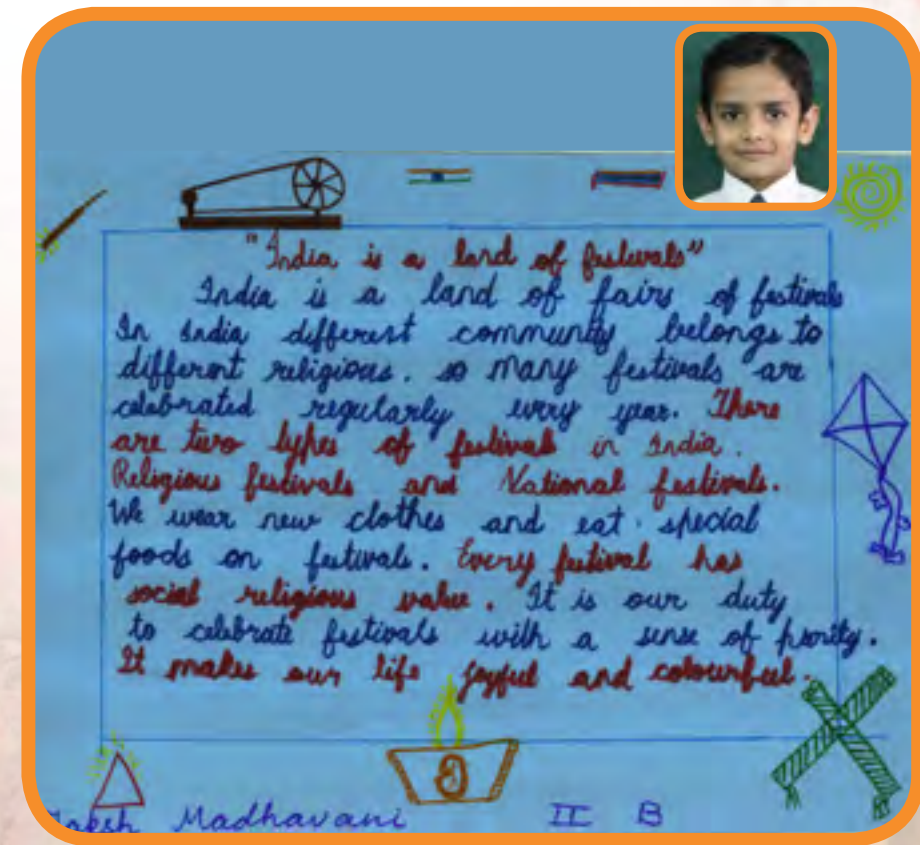 "India is a land of festivals"
India is a land of fairs of festivals
In India different community belongs to
different religious. so many festivals are
celebrated regularly every year. There
are two types of festival in India.
Religious festivals and National festivals.
We wear new clothes and eat special
foods on festivals. Every festival has
social religious value. It is our duty
to celebrate festivals with a sense of
It makes our life joyful and colourful.
Madhavani II B